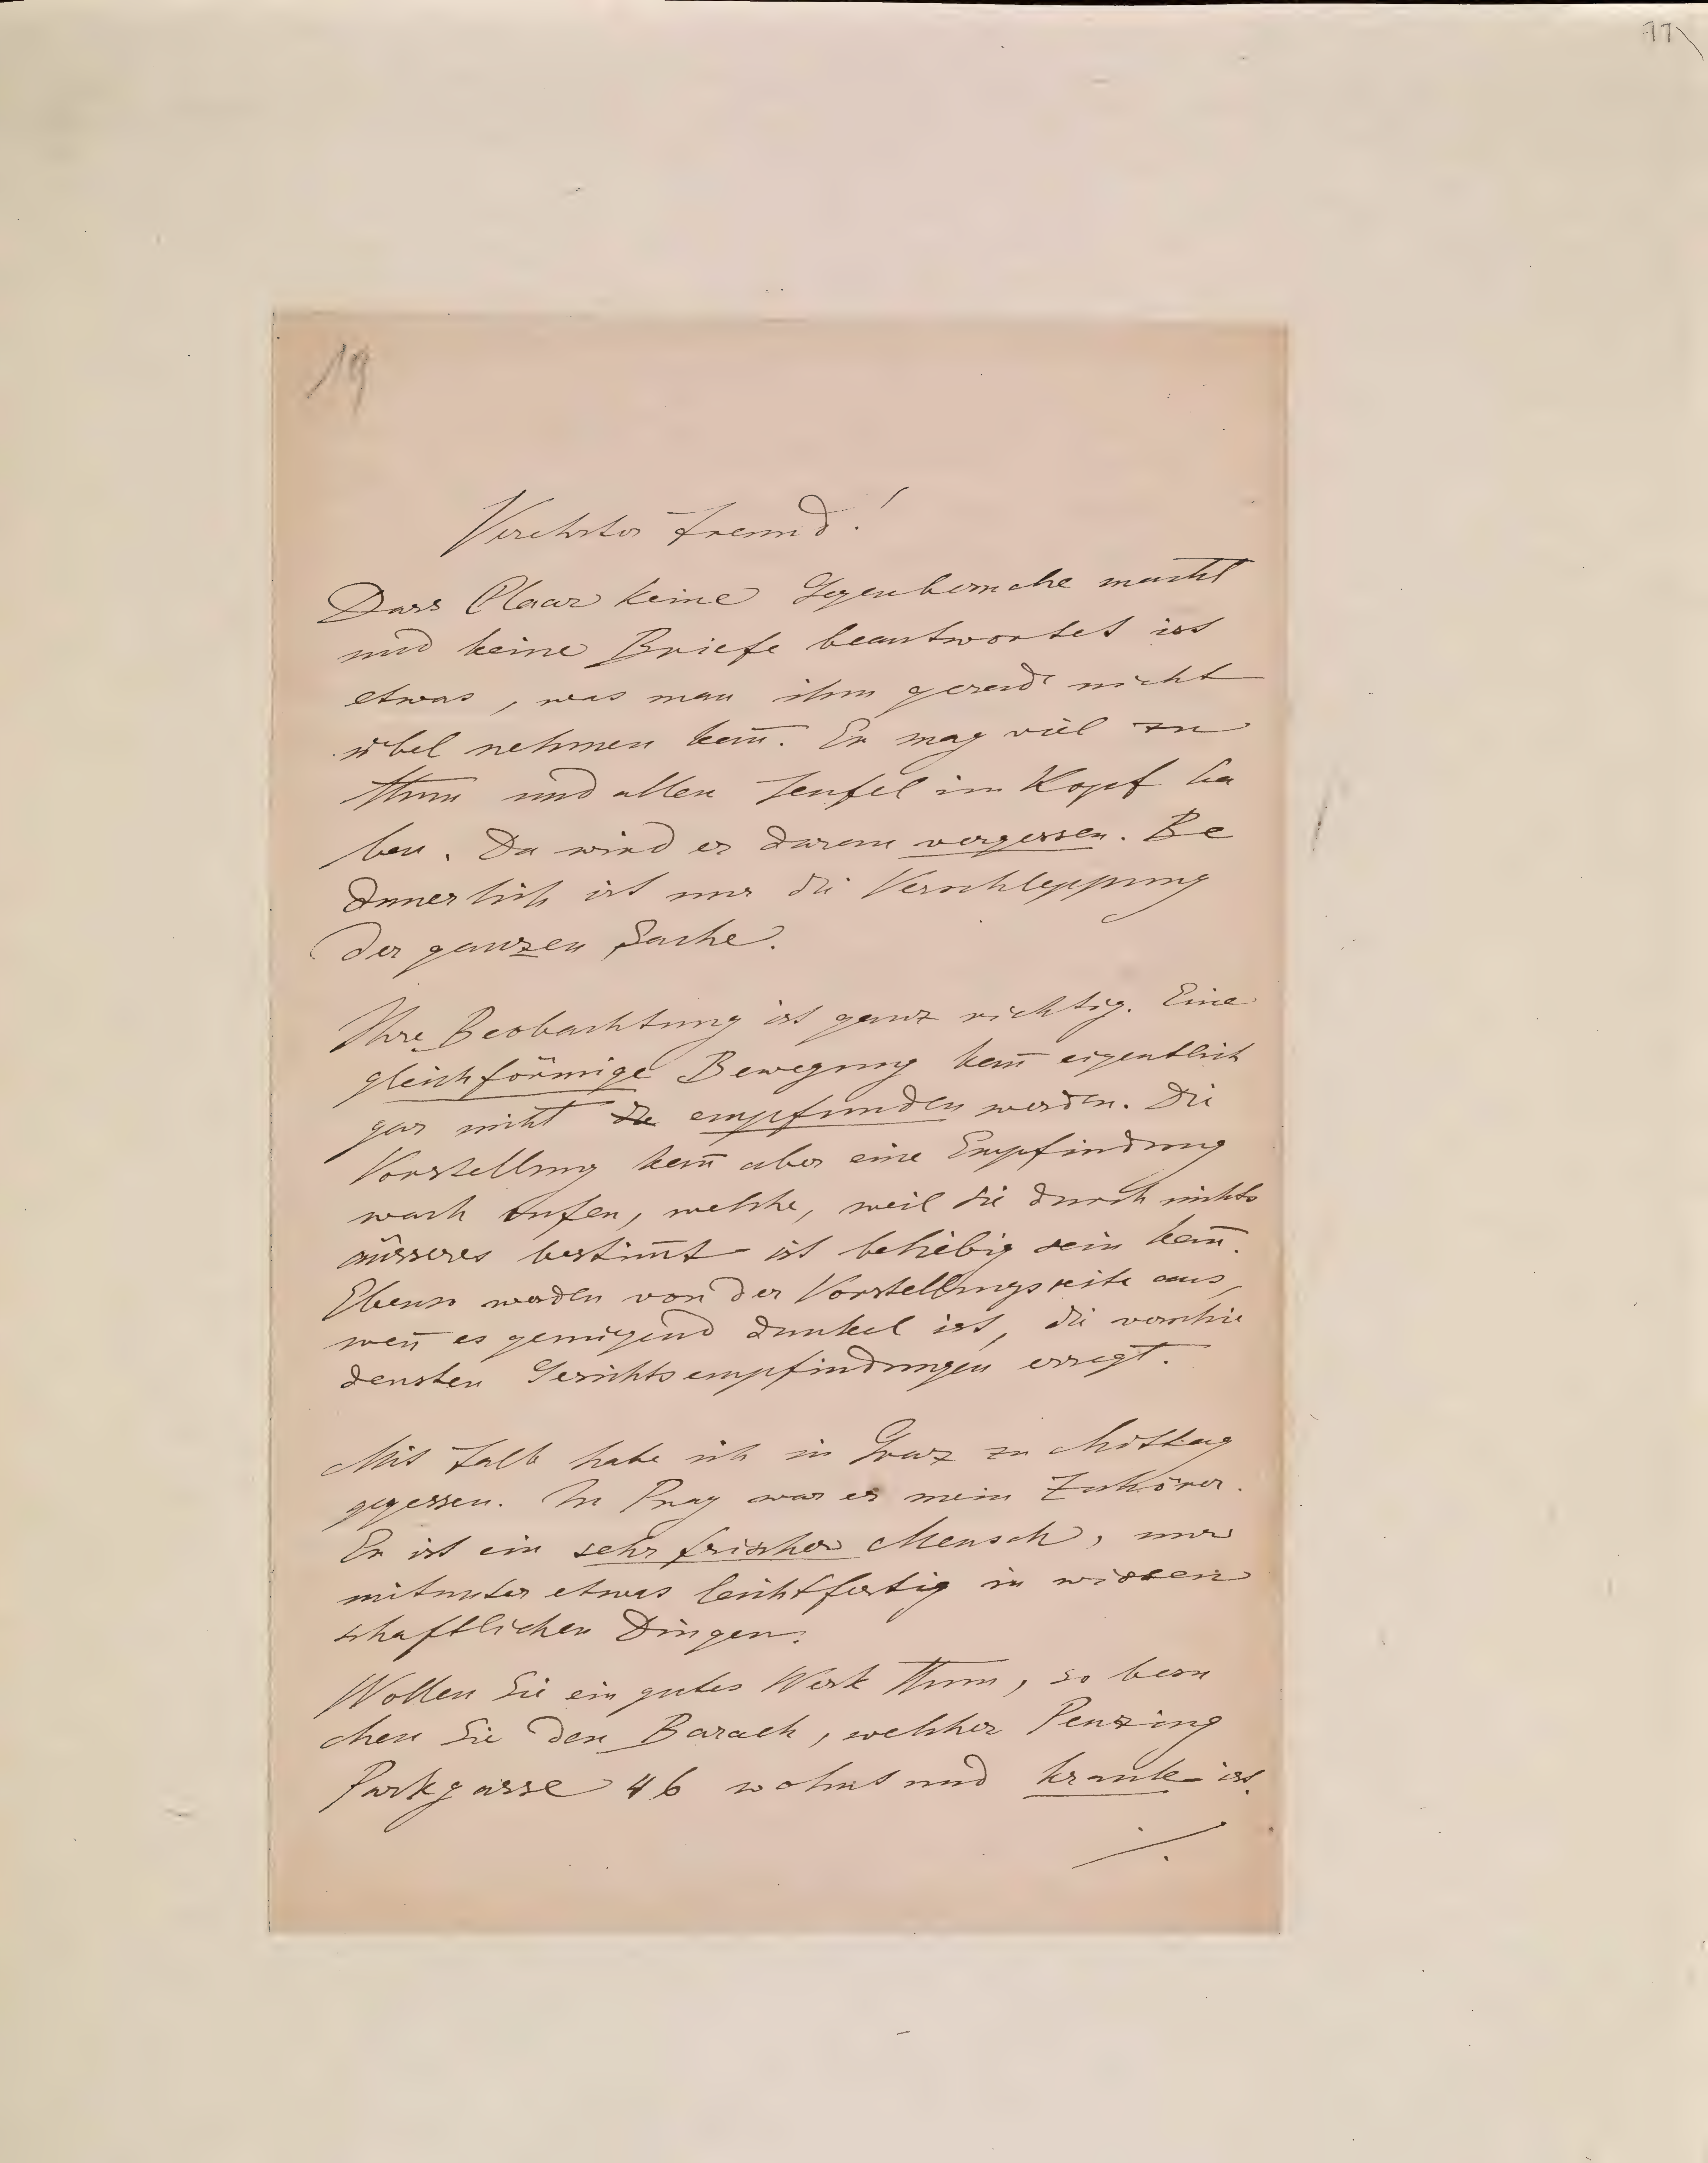 77
19
Verehrter Freund!
Dass Claar keine Gegenbesuche macht
und keine Briefe beantwortet ist
etwas, was man ihm gerad nicht
übel nehmen kañ. Er mag viel zu
thun und allen Teufel im Kopf ha
ben. Da wird er darauf vergessen. Be
dauerlich ist nur die Verschleppung
der ganzen Sache.
Ihre Beobachtung ist ganz richtig. Eine
gleichförmige Bewegung kañ eigentlich
gar nicht empfunden werden. Die
Vorstellung kañ aber eine Empfindung
wach rufen, welche, weil sie durch nichts
äusseres bestim̄t ist beliebig sein kañ.
Ebenso werden von der Vorstellungsseite aus,
weñ es genügend dunkel ist, die verschie
densten Gesichtsempfindungen erregt.
Mit Falb habe ich in Graz zu Mittag
gegessen. In Prag war er mein Zuhörer.
Er ist ein sehr frischer Mensch, nur
mitunter etwas leichtfertig in wissen
schaftlichen Dingen.
Wollen Sie ein gutes Werk thun, so besu
chen Sie den Barach, welcher Penzing
Parkgasse 46 wohnt und krank ist.
./.